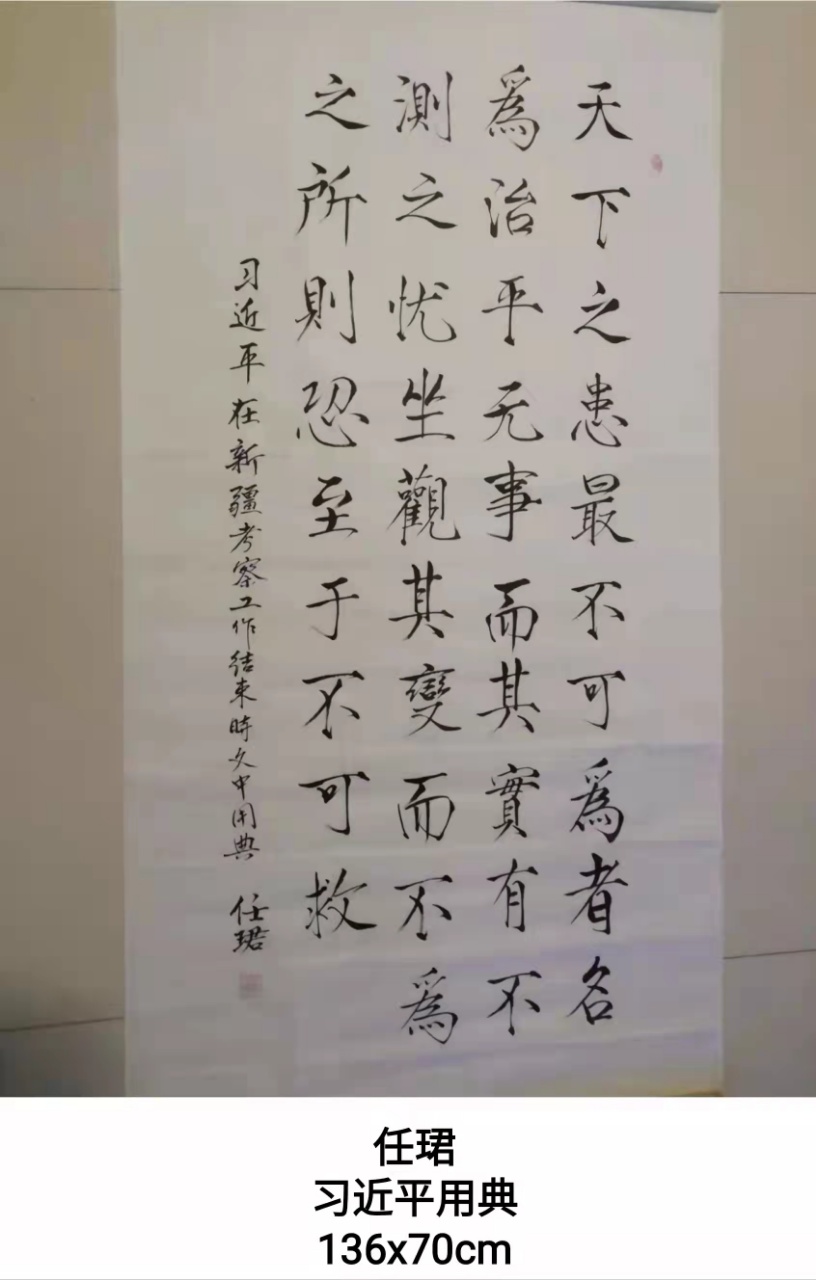 天下之患最不可爲者名
爲治平无事而其實有不
測之忧坐觀其變而不爲
之所則恐至于不可救
习近平在新疆考察工作结束時文中用典 任珺
任珺
习近平用典
136x70cm